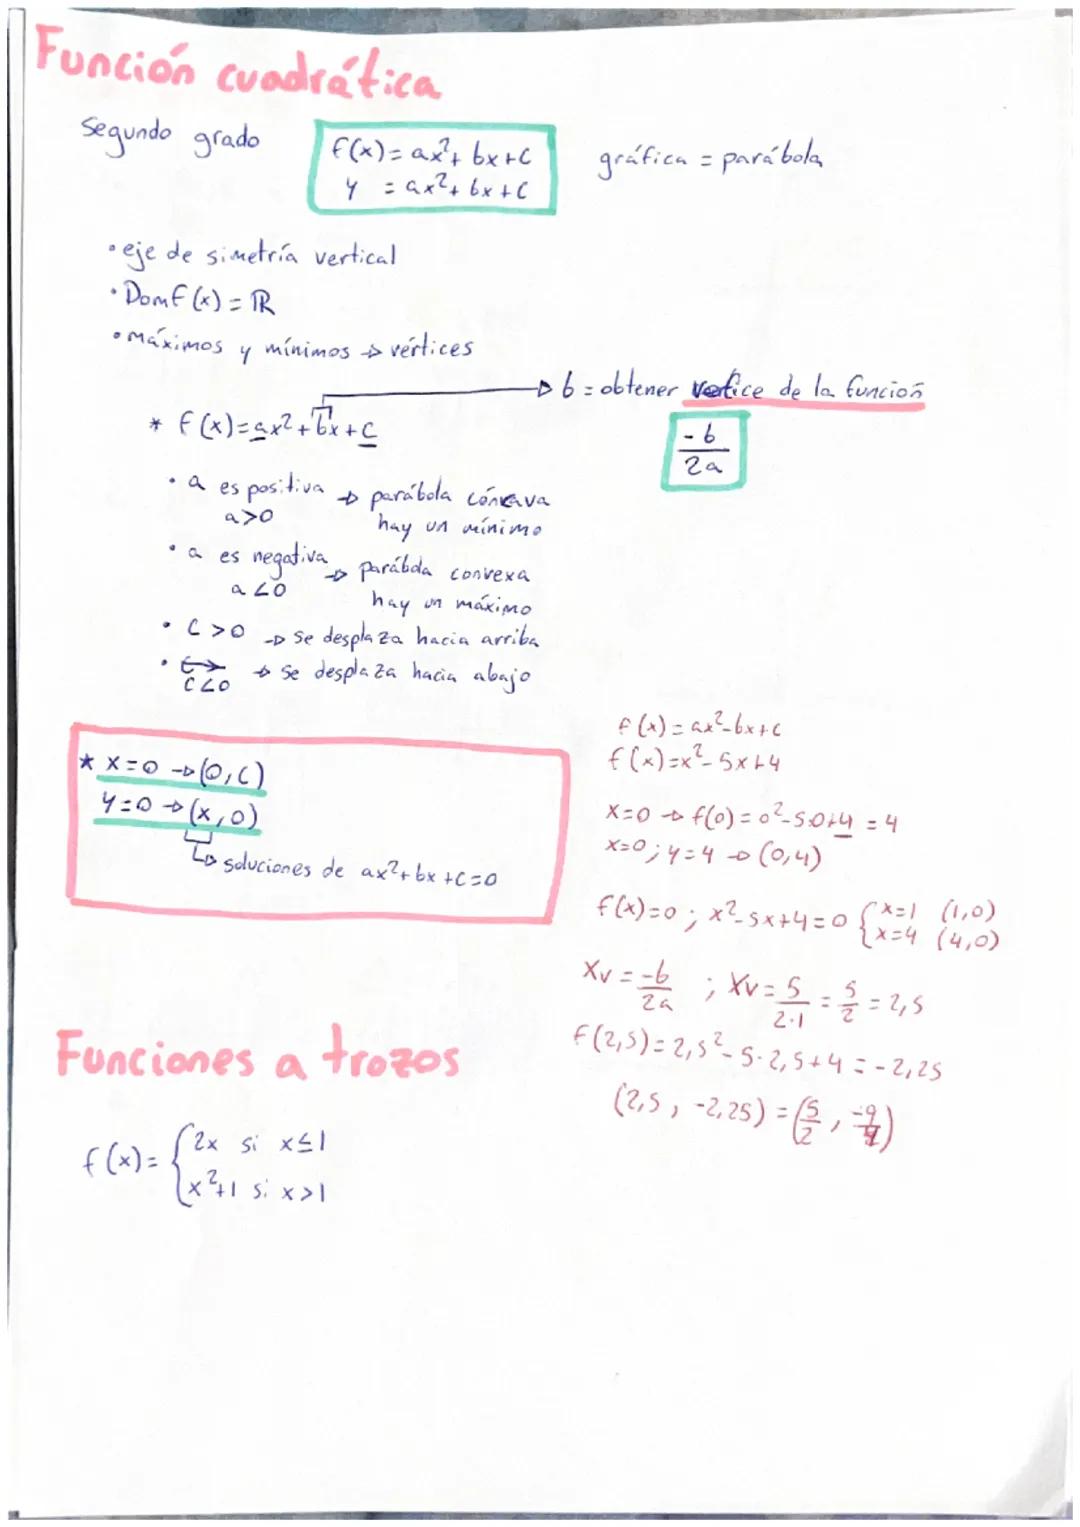 Función cuadrática
Segundo grado
f(x) = ax²+ bx+c
y = ax²+ bx+c
gráfica = parábola
• eje de simetría vertical
• Domf(x) = ℝ
• máximos y mínimos → vértices
→ b = obtener vertice de la función
-b/2a
* f(x)=ax²+bx+c
• a es positiva → parábola cóncava
a>0 hay un mínimo
• a es negativa → parábola convexa
a<0 hay un máximo
• C>0 → se desplaza hacia arriba
• → se desplaza hacia abajo
C<0
* x=0 → (0,c)
y=0 → (x,0)
↳ soluciones de ax²+bx+c=0
f(x)=ax²-bx+c
f(x)=x²-5x+4
x=0 → f(0)=0²-5·0+4 = 4
x=0; y=4 → (0,4)
f(x)=0 ; x²-5x+4=0 { x=1 (1,0)
x=4 (4,0)
Xv = -b/2a ; Xv = 5/2·1 = 5/2 = 2,5
f(2,5)=2,5²-5·2,5+4 = -2,25
(2,5 , -2,25) = (5/2 , -9/4)
Funciones a trozos
f(x)= { 2x si x≤1
x²+1 si x>1